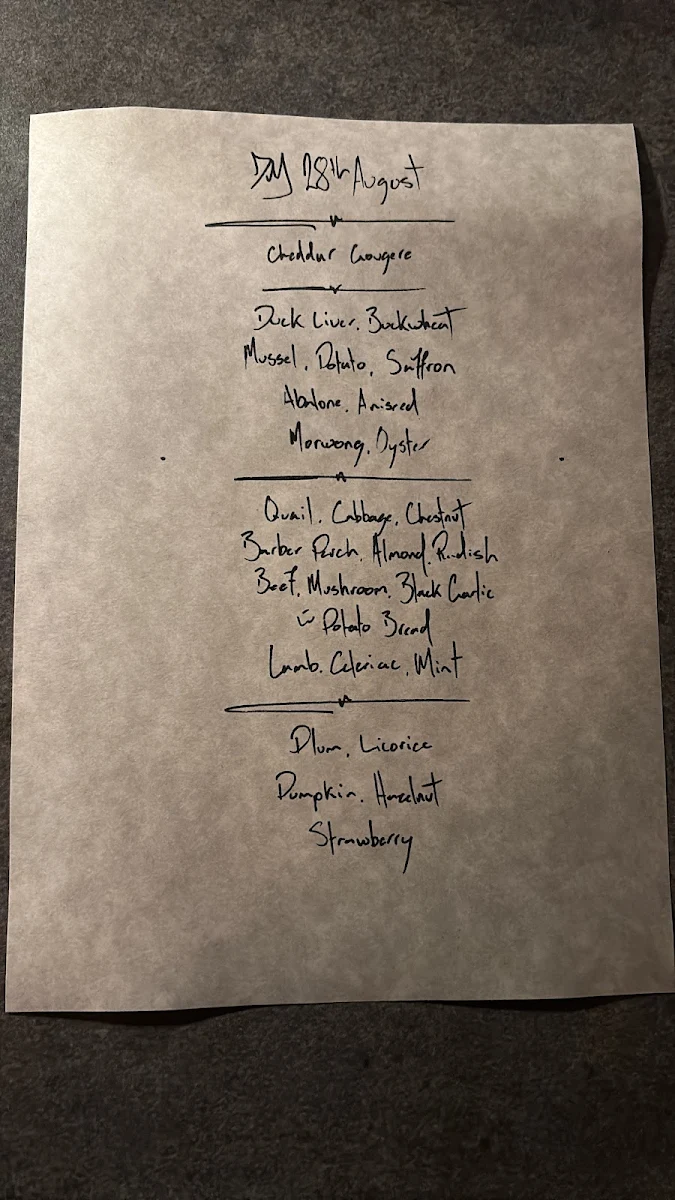 28th August
Cheddar Gougere
Duck Liver, Buckwheat
Mussel, Potato, Saffron
Abalone, Aniseed
Morwong, Oyster
Quail, Cabbage, Chestnut
Barber Perch, Almond, Radish
Beef, Mushroom, Black Garlic
Potato Bread
Lamb, Celeriac, Mint
Plum, Licorice
Pumpkin, Hazelnut
Strawberry